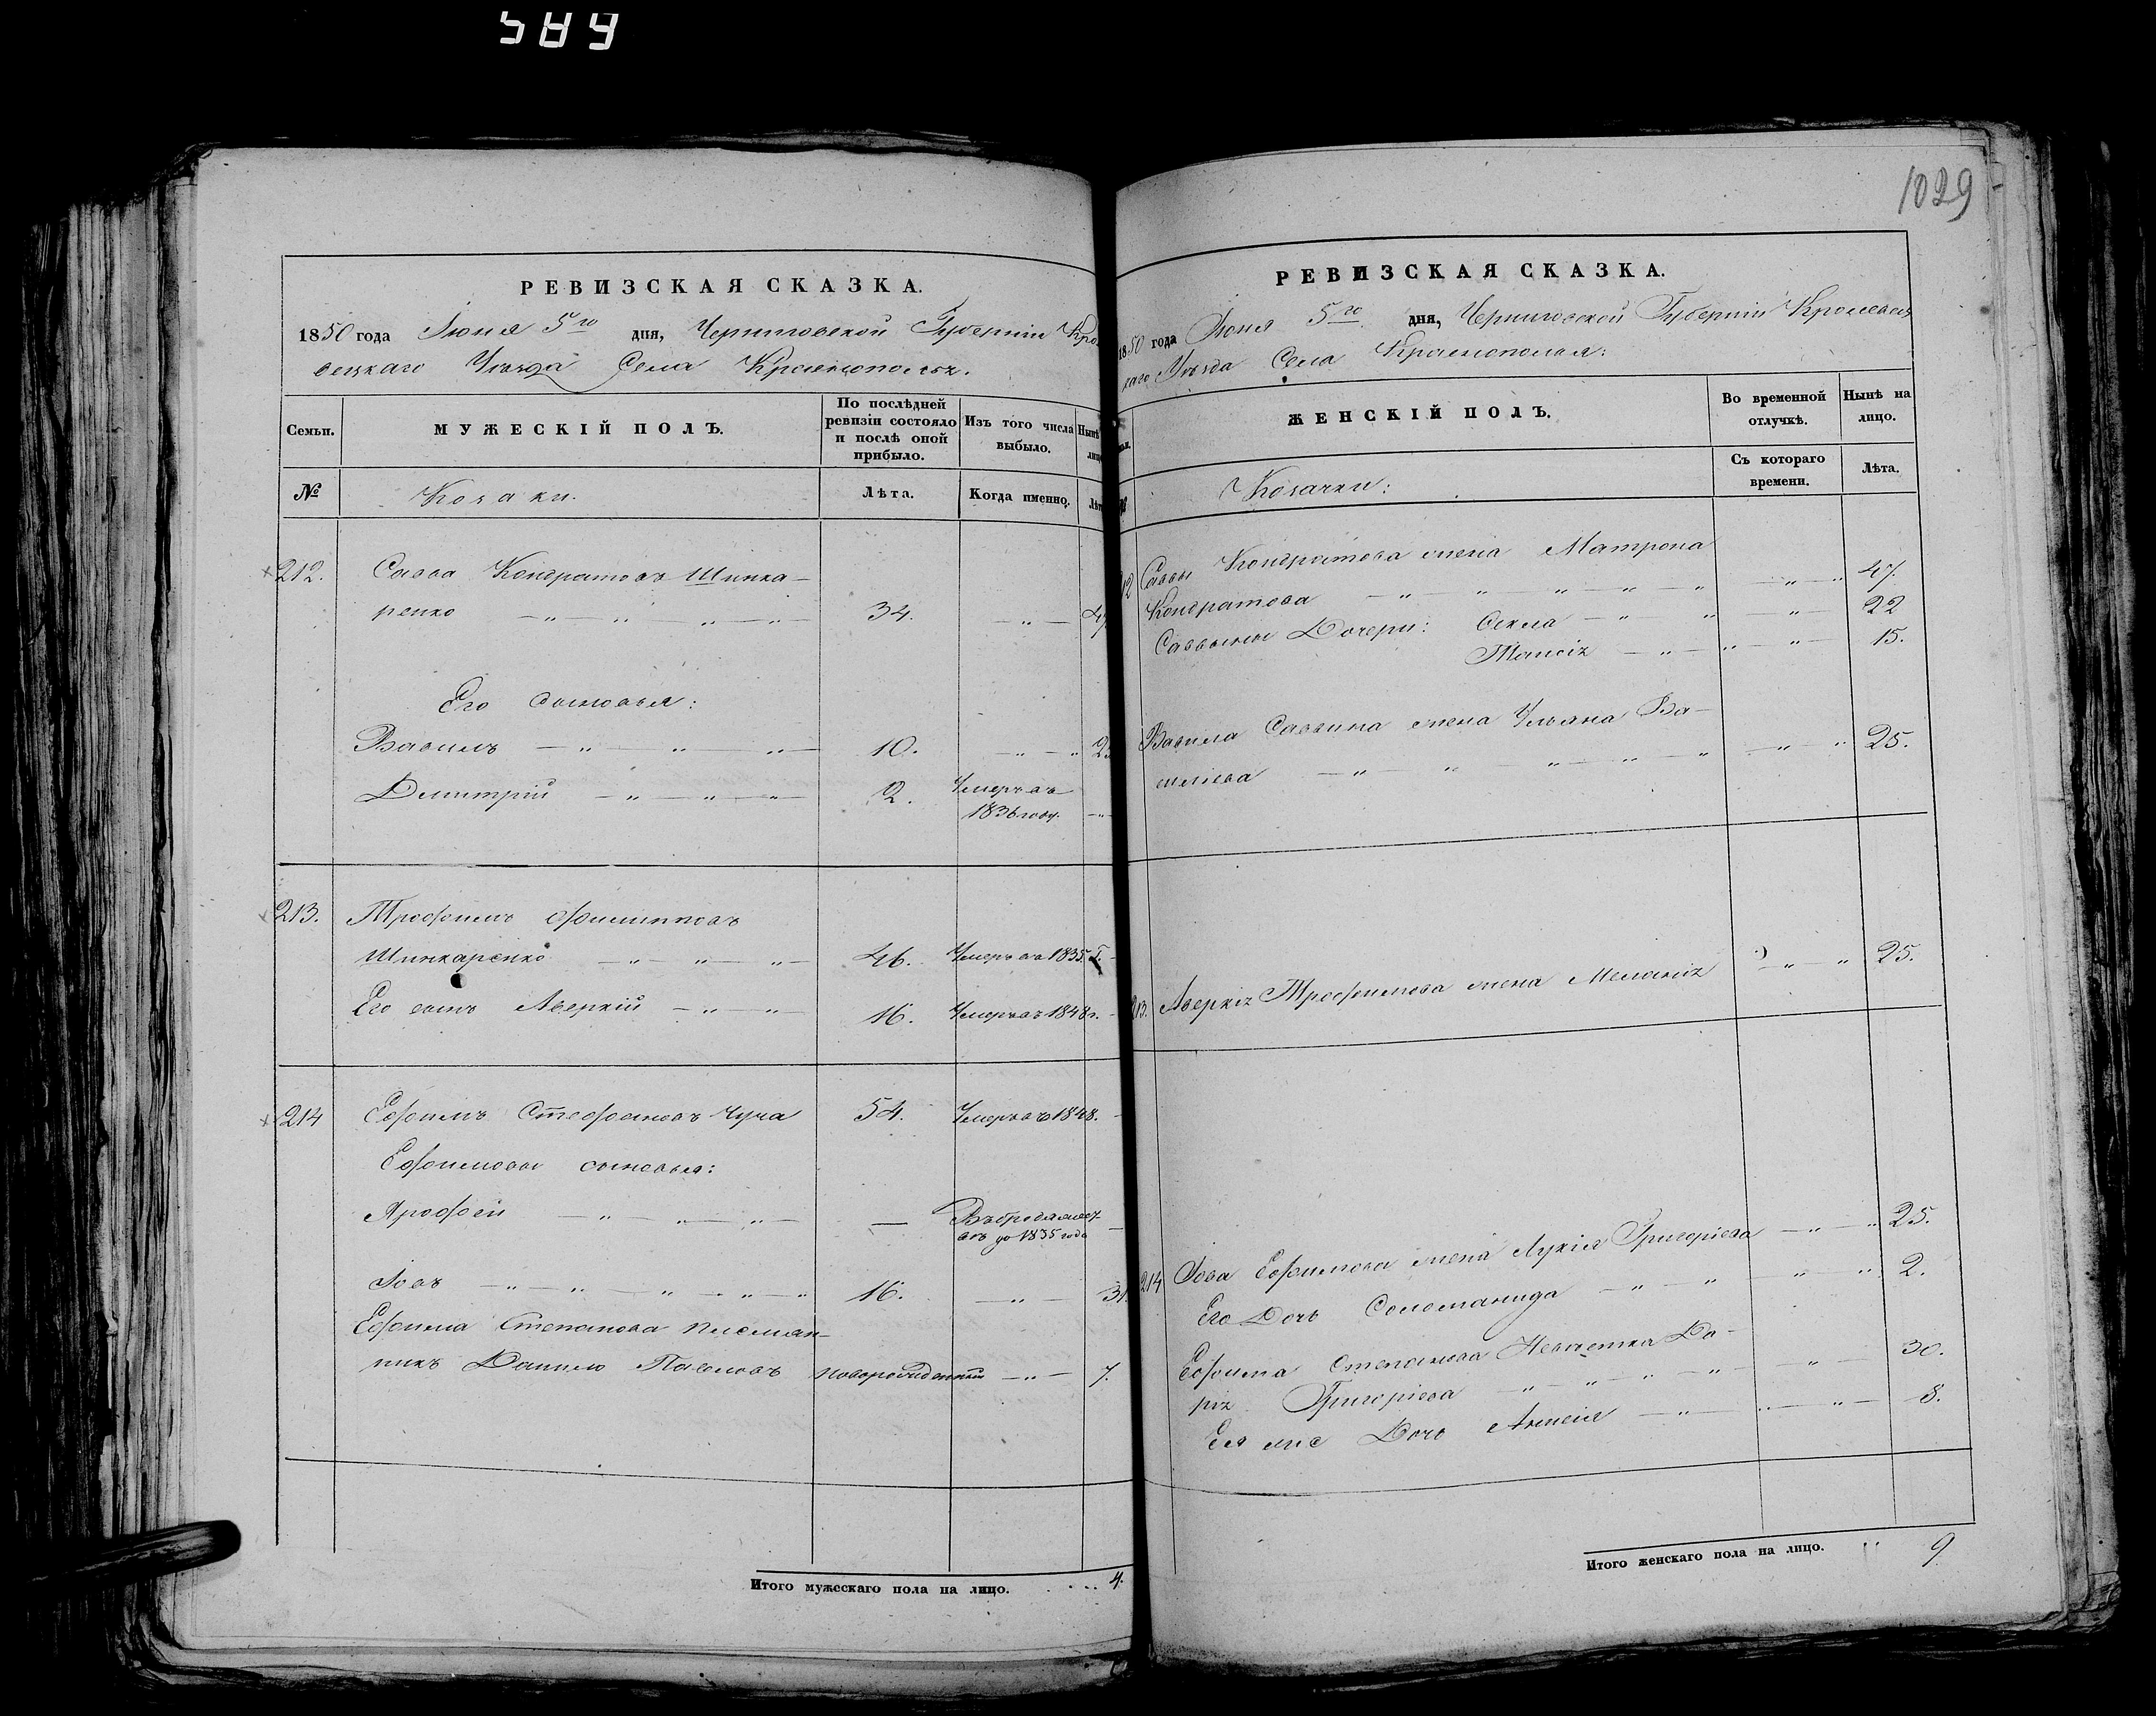 589
1029
РЕВИЗСКАЯ СКАЗКА.
1850 года Іюня 5го дня, Черниговской Губерніи Кро
вецкаго Уѣзда Села Краснополья.
Семьи.
МУЖЕСКІЙ ПОЛЪ.
По послѣдней ревизіи состояло и послѣ оной прибыло.
Изъ того числа выбыло.
Нынѣ
№
Козаки.
Лѣта.
Когда именно.
212. Савва Кондратовъ Шинка-
ренко 34.
Его сыновья:
Вавилъ 10.
Димитрій 2. Умеръ въ
1836 году.
213. Трофимъ Филипповъ
Шинкаренко 46. Умеръ въ 1835 г.
Его сынъ Аверкій 16. Умеръ въ 1848 г.
214 Ефимъ Стефановъ Чуча 54. Умеръ въ 1848.
Ефимовы сыновья:
Ярофей — Въ бродяжест-
вѣ до 1835 года
Іовъ 16. 31.
Ефима Степанова племян-
никъ Данило Павловъ новорожденный 7.
Итого мужескаго пола на лицо. 4.
РЕВИЗСКАЯ СКАЗКА.
1850 года Іюня 5го дня, Черниговской Губерніи Кролевец
каго Уѣзда Села Краснополья:
ЖЕНСКІЙ ПОЛЪ.
Во временной отлучкѣ.
Нынѣ на лицо.
Козачки:
Съ котораго времени.
Лѣта.
212 Саввы Кондратова жена Матрона
Кондратова 47.
Саввины Дочери: Фекла 22
Таисія 15.
Вавила Саввина жена Ульяна Ва-
сильева 25.
213. Аверкія Трофимова жена Меланія 25.
214 Іова Ефимова жена Лукія Григорьева 25.
Его Дочь Соломанида 2.
Ефима Степанова Невѣстка Да-
рія Григорьева 30.
Ея же Дочь Анисія 8.
Итого женскаго пола на лицо. 9